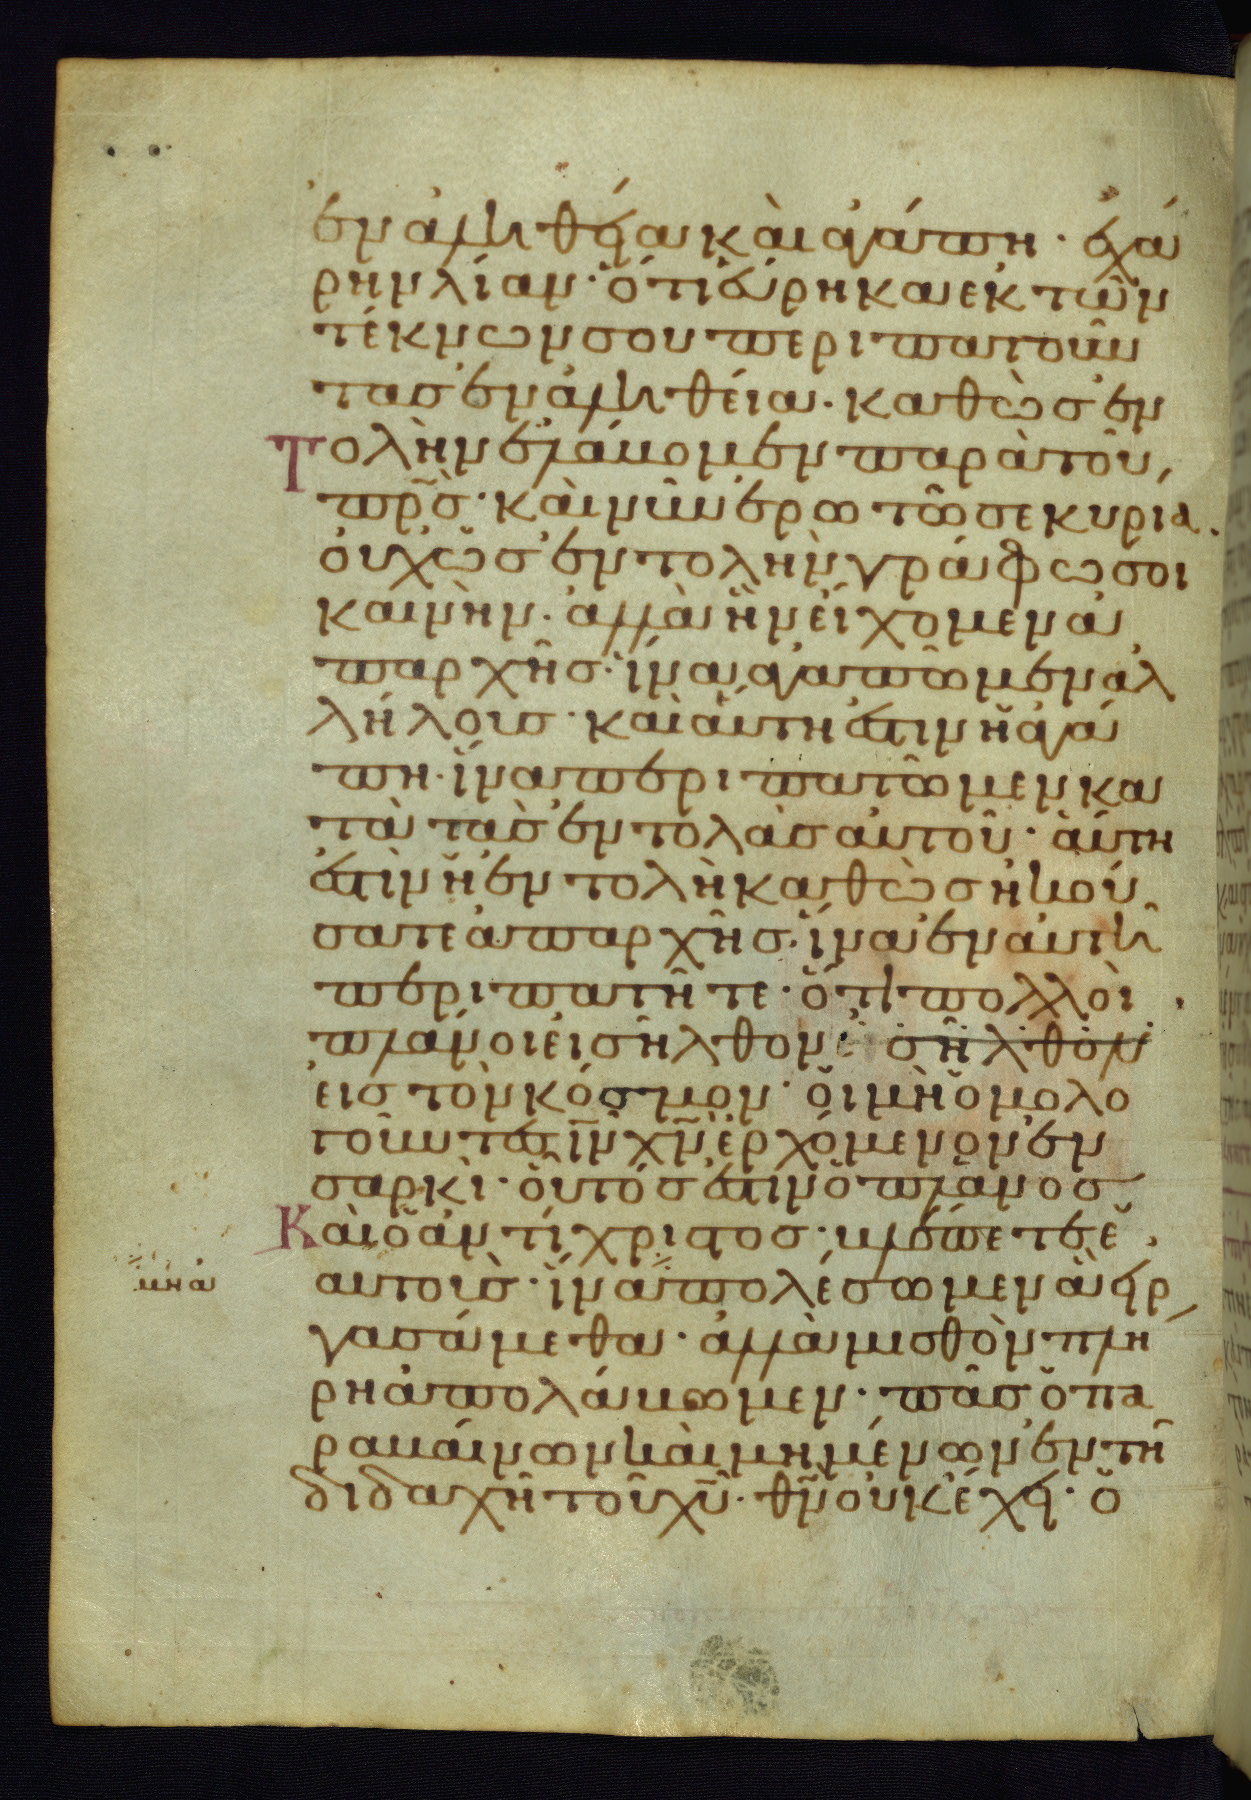 ἐν ἀληθεία καὶ ἀγάπη · ἐχά
ρην λίαν · ὅτι εὕρηκα ἐκ τῶν
τέκνων σου περιπατοῦν
τας ἐν ἀληθεία · καθὼς ἐν
Τολὴν ἐλάβομεν παρὰ τοῦ
πρ̅ς · καὶ νῦν ἐρωτῶ σε κυρία ·
οὐχ ὡς ἐντολὴν γράφω σοι
καινὴν · ἀλλὰ ἣν εἴχομεν ἀ
παρχῆς · ἵνα ἀγαπῶμεν ἀλ
λήλοις · καὶ αὕτη ἐστὶν ἡ ἀγά
πη · ἵνα περιπατῶμεν κα
τὰ τὰς ἐντολὰς αὐτοῦ · αὕτη
ἐστὶν ἡ ἐντολὴ καθὼς ἠκού
σατε ἀπαρχῆς · ἵνα ἐν αὐτῆ
περιπατῆτε · ὅτι πολλοὶ
πλάνοι εἰσῆλθον εἰσῆλθον
εἰς τὸν κόσμον · οἱ μὴ ὁμολο
γοῦντες ι̅ν χ̅ν ἐρχόμενον ἐν
σαρκὶ · οὗτός ἐστιν ὁ πλάνος
Καὶ ὁ ἀντίχριστος · βλέπετε ἑ
αυτοῖς · ἵνα ἀπολέσωμεν ἃ εἰρ
μὴ ἀ
γασάμεθα · ἀλλὰ μισθὸν πλή
ρη ἀπολάβωμεν · πᾶς ὁ πα
ραβαίνων καὶ μὴ μένων ἐν τῆ
διδαχῆ τοῦ χ̅υ · θ̅ν οὐκ ἔχει · ὁ